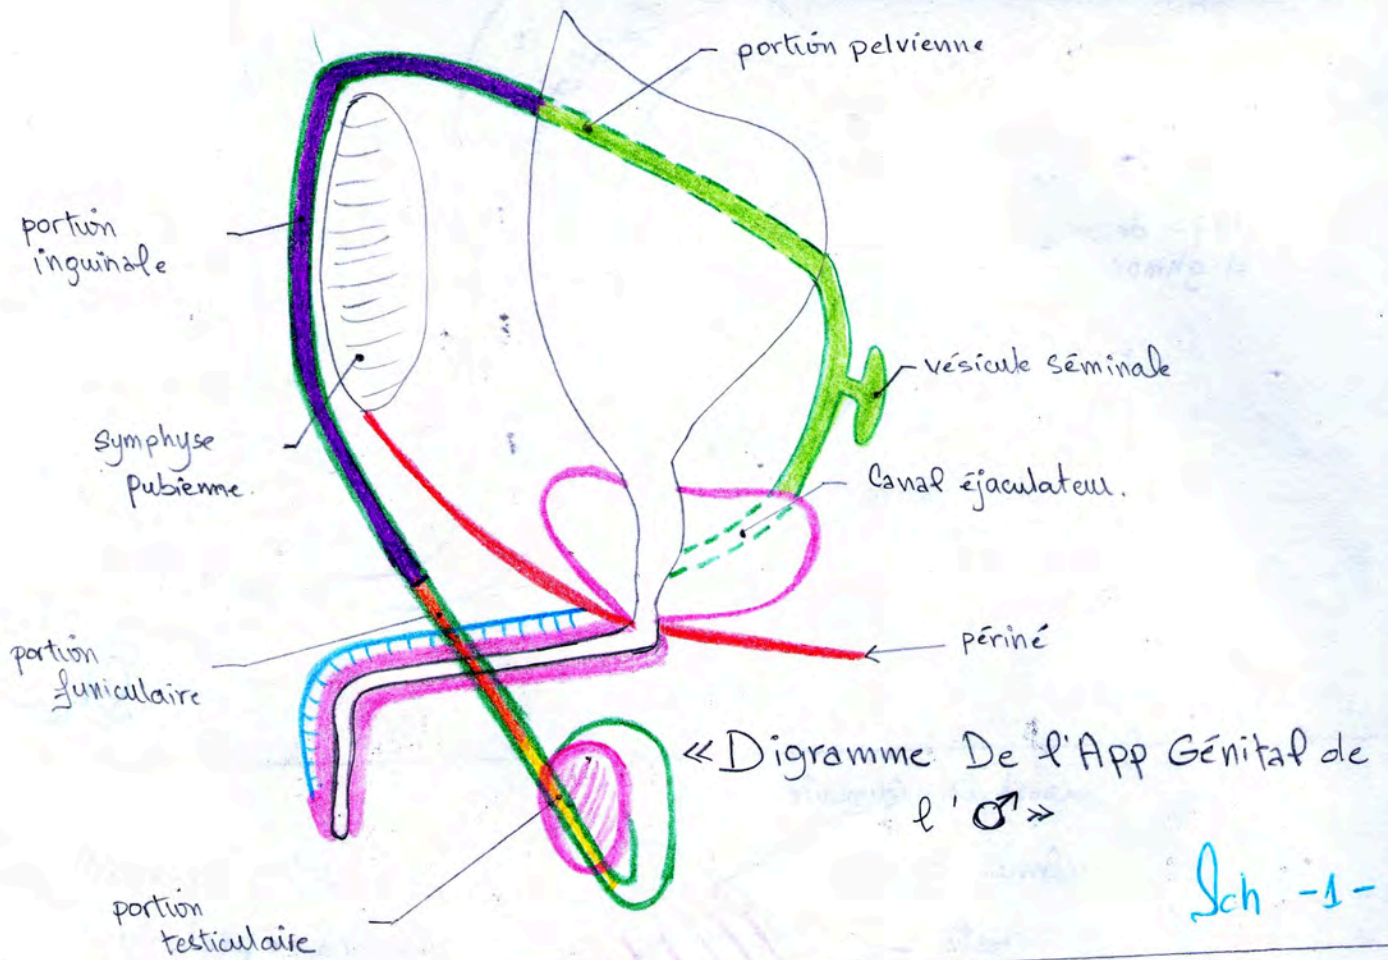 portion pelvienne
portion
inguinale
vésicule séminale
Symphyse
pubienne.
Canal éjaculateur.
périné
portion
funiculaire
«Digramme De l'App Génital de
l'♂»
Sch -1-
portion
testiculaire